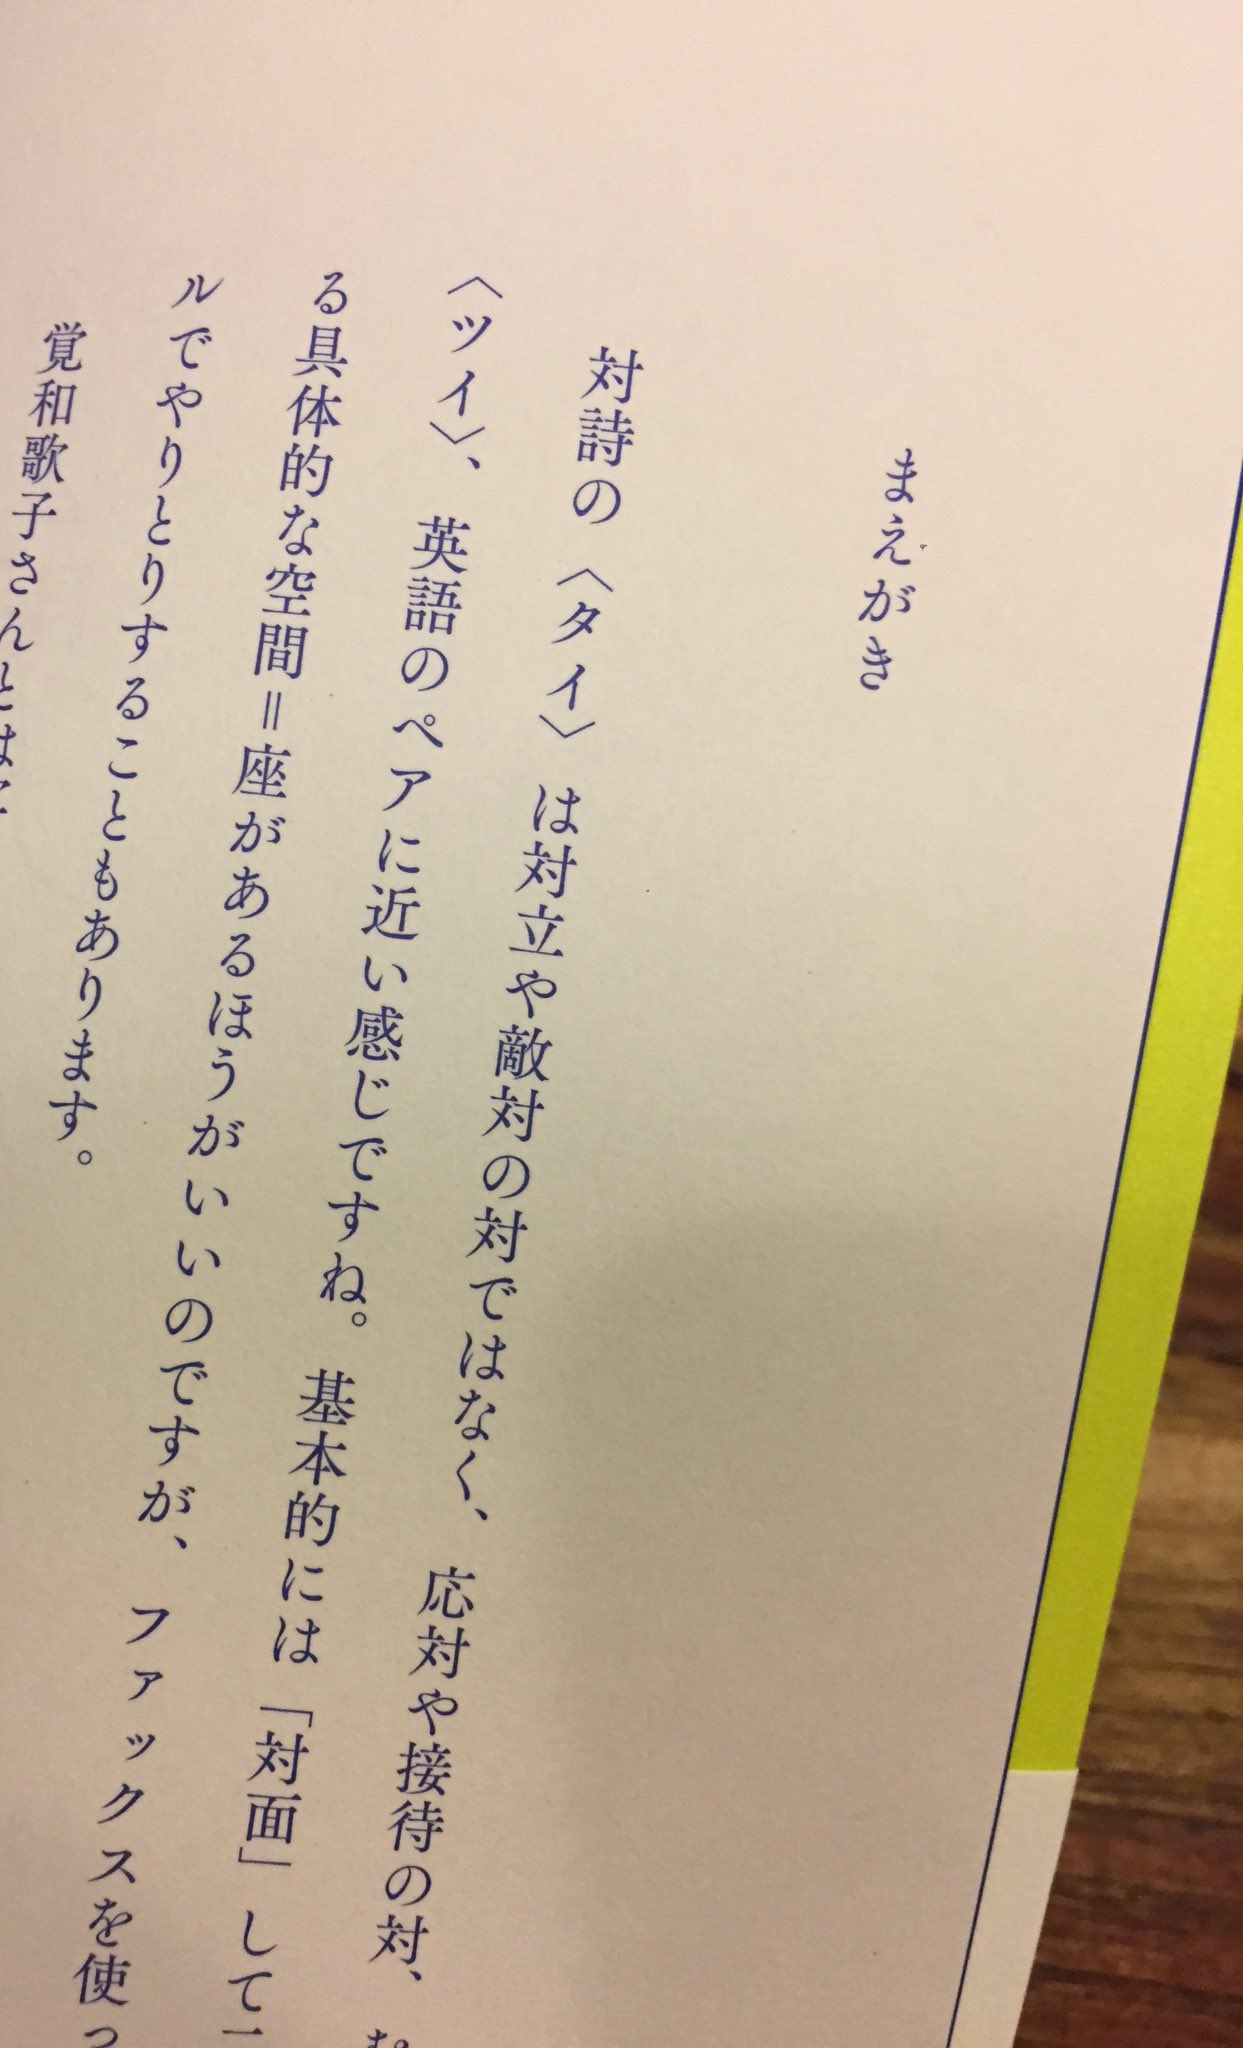 まえがき
対詩の〈タイ〉は対立や敵対の対ではなく、応対や接待の対、
〈ツイ〉、英語のペアに近い感じですね。基本的には「対面」して
る具体的な空間＝座があるほうがいいのですが、ファックスを使っ
ルでやりとりすることもあります。
覚和歌子さんとは